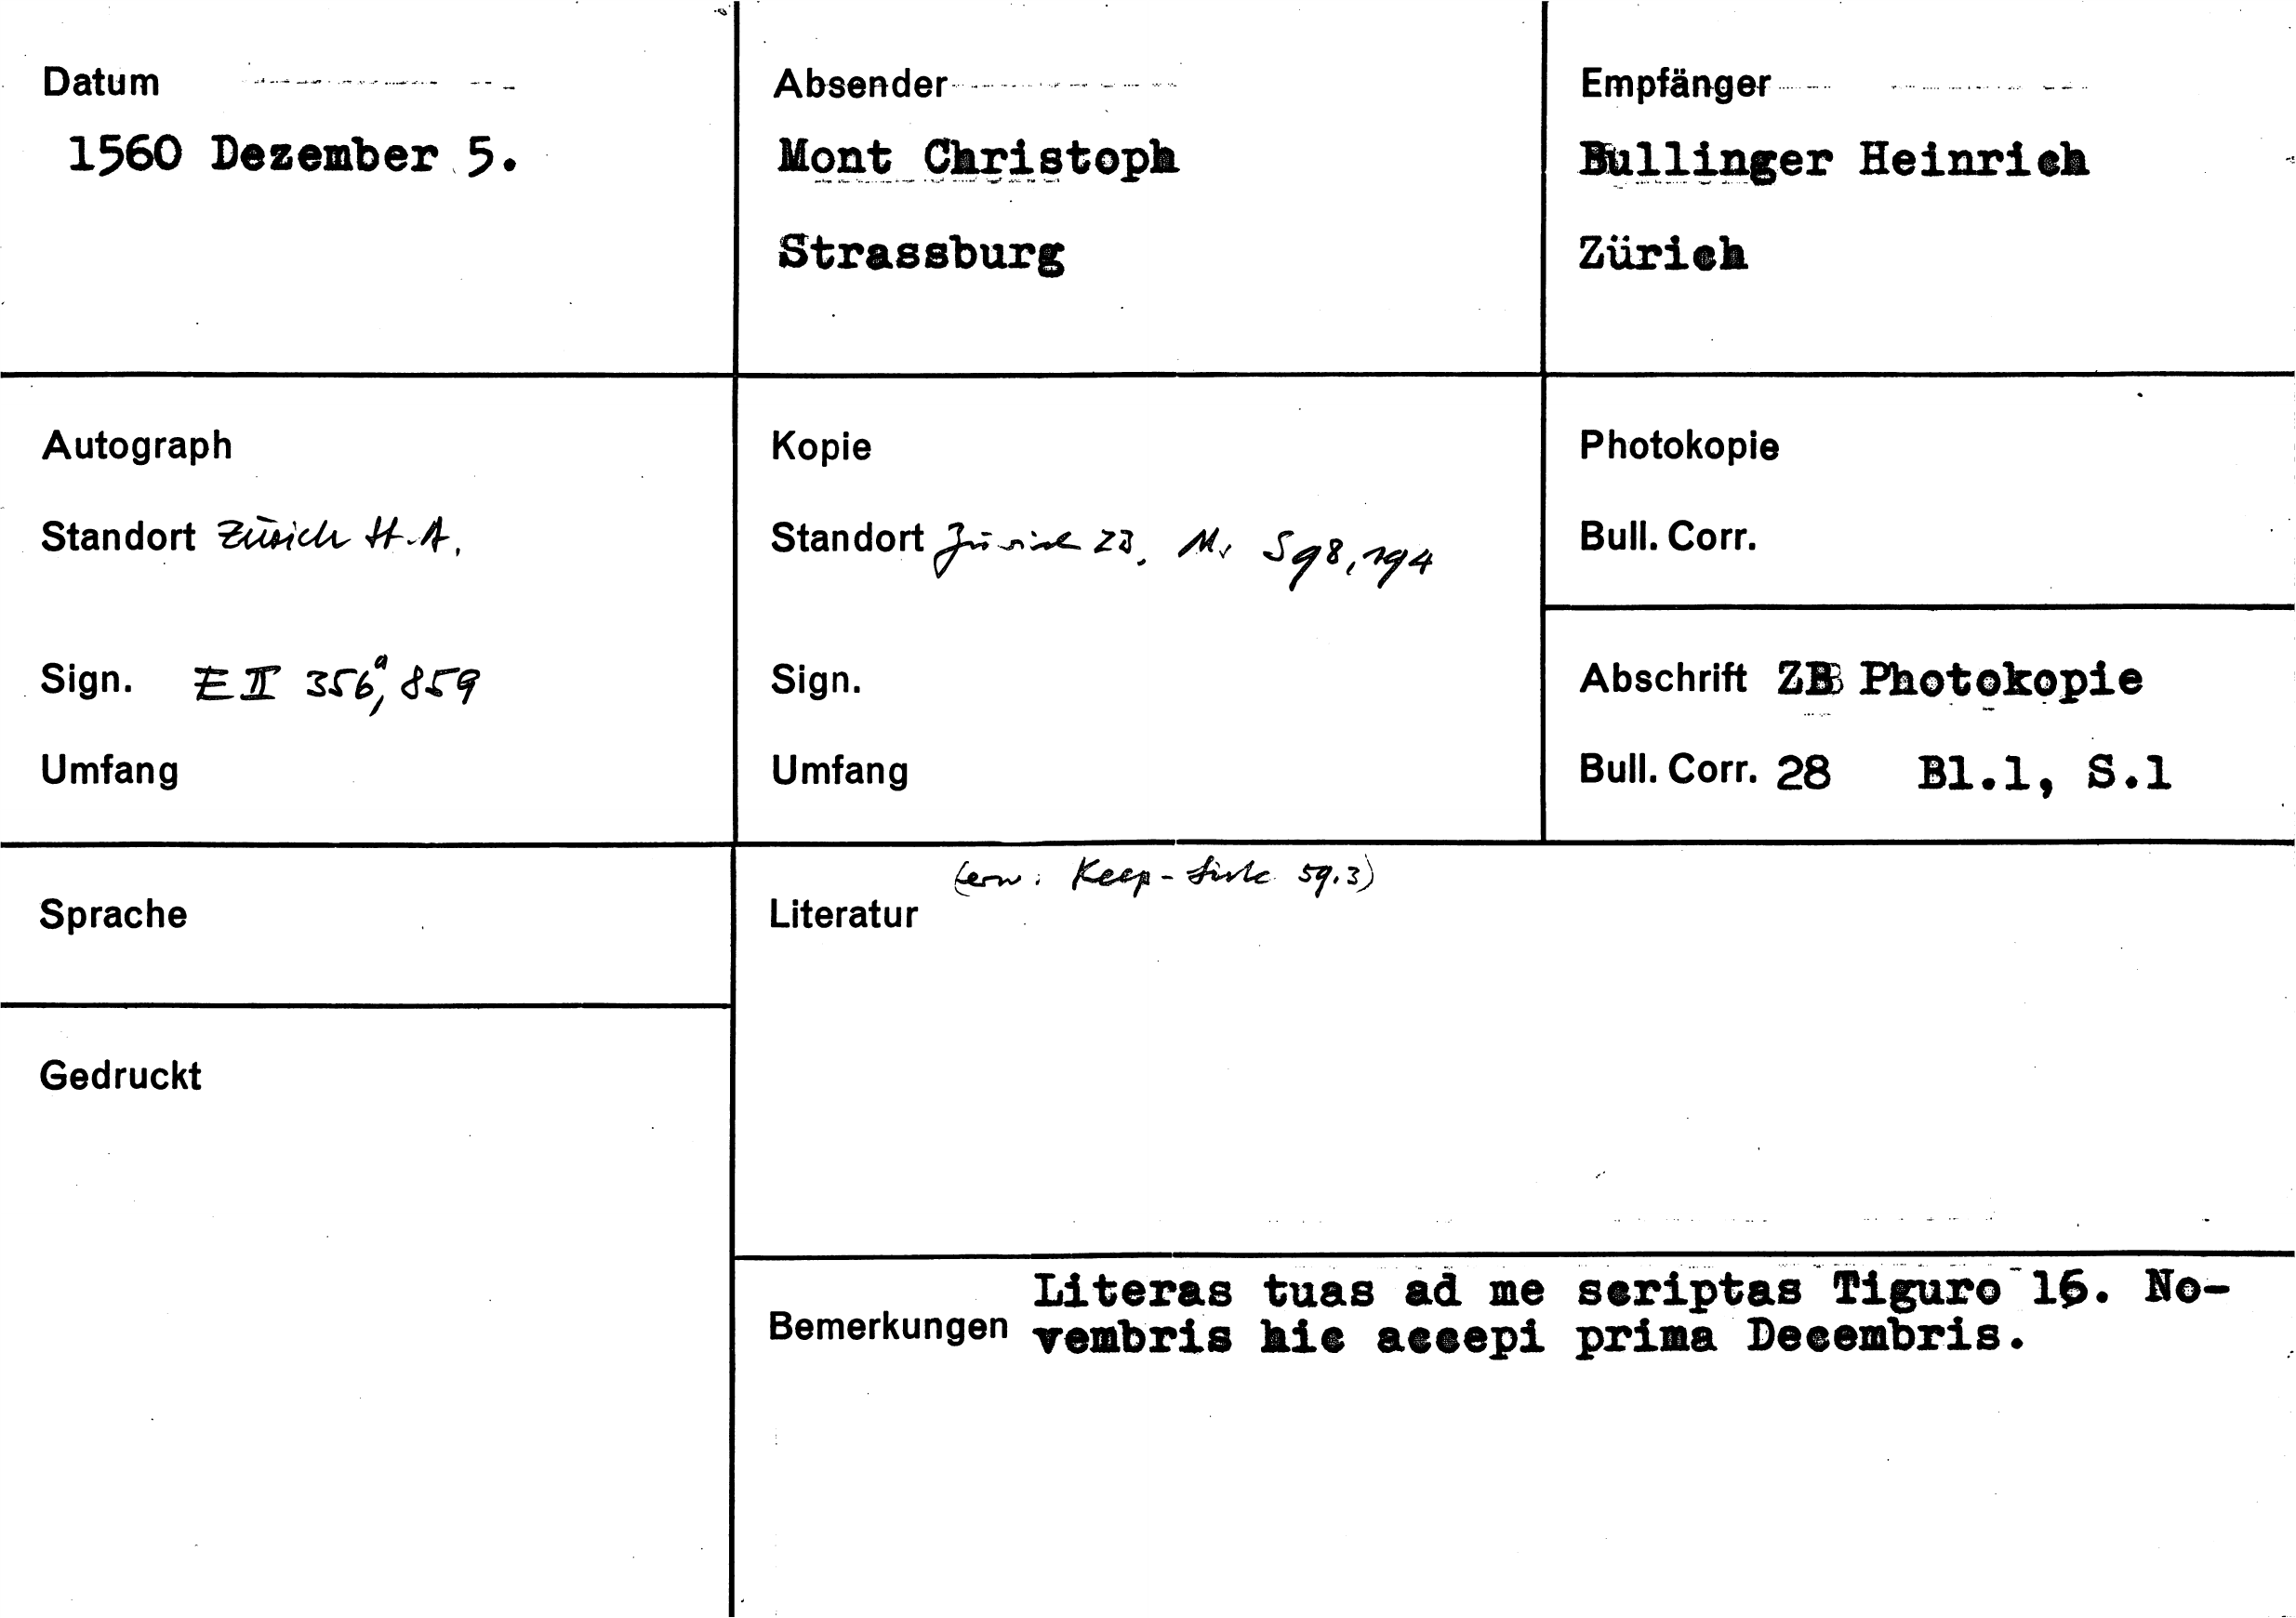 Datum
1560 Dezember 5.
Absender
Mont Christoph
Strassburg
Empfänger
Bullinger Heinrich
Zürich
Autograph
Standort Zürich St.A.
Sign. E II 356a, 859
Umfang
Kopie
Standort Zürich ZB, Ms S 98, 194
Sign.
Umfang
Photokopie
Bull. Corr.
Abschrift ZB Photokopie
Bull. Corr. 28 Bl.1, S.1
Sprache
Gedruckt
(erw: Keep-Liste 59.3)
Literatur
Bemerkungen
Literas tuas ad me scriptas Tiguro 16. No-
vembris hic accepi prima Decembris.